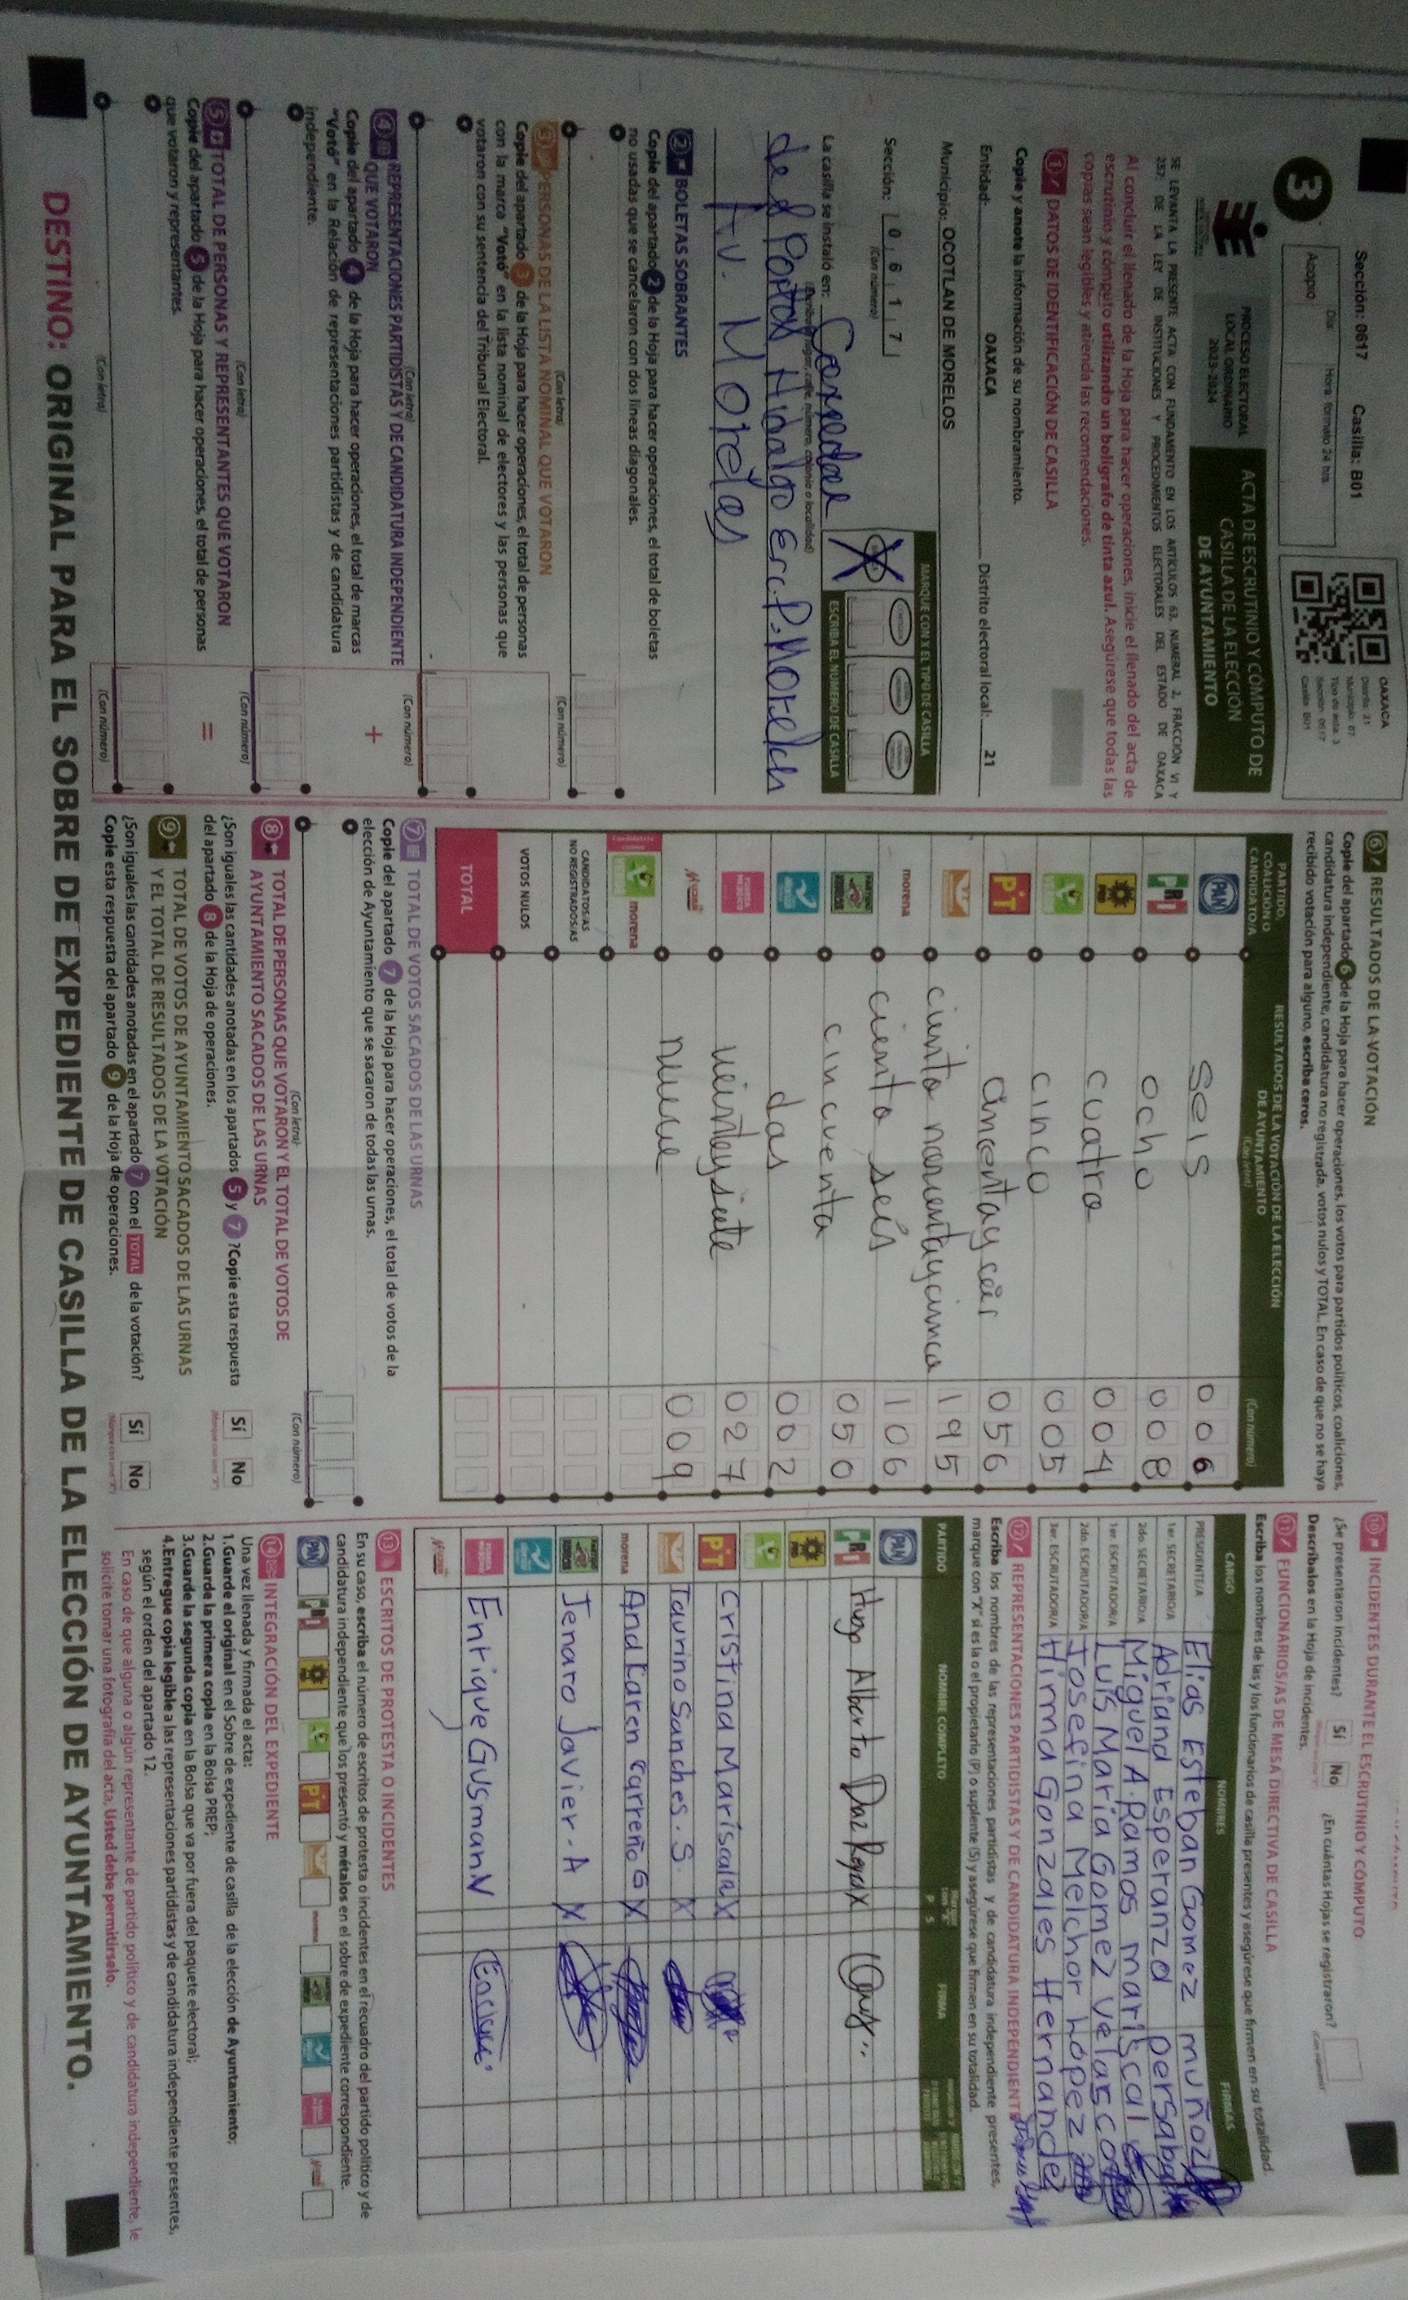 Sección: 0617 Casilla: B01
3
Acopio
Día:
Hora: formato 24 hrs.
OAXACA
Distrito: 21
Municipio: 67
Tipo de acta: 3
Sección: 0617
Casilla: B01
PROCESO ELECTORAL
LOCAL ORDINARIO
2023-2024
ACTA DE ESCRUTINIO Y CÓMPUTO DE
CASILLA DE LA ELECCIÓN
DE AYUNTAMIENTO
SE LEVANTA LA PRESENTE ACTA CON FUNDAMENTO EN LOS ARTÍCULOS 63, NUMERAL 2, FRACCIÓN VI Y
237 DE LA LEY DE INSTITUCIONES Y PROCEDIMIENTOS ELECTORALES DEL ESTADO DE OAXACA
Al concluir el llenado de la Hoja para hacer operaciones, inicie el llenado del acta de
escrutinio y cómputo utilizando un bolígrafo de tinta azul. Asegúrese que todas las
copias sean legibles y atienda las recomendaciones.
1 DATOS DE IDENTIFICACIÓN DE CASILLA
Copie y anote la información de su nombramiento.
Entidad: OAXACA Distrito electoral local: 21
Municipio: OCOTLÁN DE MORELOS
Sección: 0 6 1 7
(Con número)
MARQUE CON X EL TIPO DE CASILLA
ESCRIBA EL NÚMERO DE CASILLA
X
La casilla se instaló en: Corredor
(Escriba lugar, calle, número, colonia o localidad)
del Portal Hidalgo
Av. Morelos
2 BOLETAS SOBRANTES
Copie del apartado 2 de la Hoja para hacer operaciones, el total de boletas
no usadas que se cancelaron con dos líneas diagonales.
(Con letra) (Con número)
3 PERSONAS DE LA LISTA NOMINAL QUE VOTARON
Copie del apartado 3 de la Hoja para hacer operaciones, el total de personas
con la marca "Votó" en la lista nominal de electores y las personas que
votaron con su sentencia del Tribunal Electoral.
(Con letra) (Con número)
4 REPRESENTACIONES PARTIDISTAS Y DE CANDIDATURA INDEPENDIENTE
QUE VOTARON
Copie del apartado 4 de la Hoja para hacer operaciones, el total de marcas
"Votó" en la Relación de representaciones partidistas y de candidatura
independiente.
+
(Con letra) (Con número)
5 TOTAL DE PERSONAS Y REPRESENTANTES QUE VOTARON
Copie del apartado 5 de la Hoja para hacer operaciones, el total de personas
que votaron y representantes.
=
(Con letra) (Con número)
6 RESULTADOS DE LA VOTACIÓN
Copie del apartado 6 de la Hoja para hacer operaciones, los votos para partidos políticos, coaliciones,
candidatura independiente, candidatura no registrada, votos nulos y TOTAL. En caso de que no se haya
recibido votación para alguno, escriba ceros.
PARTIDO,
COALICIÓN O
CANDIDATO/A
RESULTADOS DE LA VOTACIÓN DE LA ELECCIÓN
DE AYUNTAMIENTO
(Con letra) (Con número)
PAN seis 006
PRI ocho 008
PRD cuatro 004
cinco 005
PT 056
ciento noventaycinco 195
morena ciento seis 106
cincuenta 050
dos 002
FUERZA MÉXICO veinteysiete 027
nueve 009
Candidatura común
morena
CANDIDATOS/AS
NO REGISTRADOS/AS
VOTOS NULOS
TOTAL
7 TOTAL DE VOTOS SACADOS DE LAS URNAS
Copie del apartado 7 de la Hoja para hacer operaciones, el total de votos de la
elección de Ayuntamiento que se sacaron de todas las urnas.
(Con letra) (Con número)
8 TOTAL DE PERSONAS QUE VOTARON Y EL TOTAL DE VOTOS DE
AYUNTAMIENTO SACADOS DE LAS URNAS
¿Son iguales las cantidades anotadas en los apartados 5 y 7 ?Copie esta respuesta
del apartado 8 de la Hoja de operaciones.
Sí No
9 TOTAL DE VOTOS DE AYUNTAMIENTO SACADOS DE LAS URNAS
Y EL TOTAL DE RESULTADOS DE LA VOTACIÓN
¿Son iguales las cantidades anotadas en el apartado 7 con el TOTAL de la votación?
Copie esta respuesta del apartado 9 de la Hoja de operaciones.
Sí No
10 INCIDENTES DURANTE EL ESCRUTINIO Y CÓMPUTO
¿Se presentaron incidentes? Sí No ¿En cuántas Hojas se registraron?
(Con número)
Descríbalos en la Hoja de incidentes.
11 FUNCIONARIOS/AS DE MESA DIRECTIVA DE CASILLA
Escriba los nombres de las y los funcionarios de casilla presentes y asegúrese que firmen en su totalidad.
CARGO NOMBRES FIRMAS
PRESIDENTE/A Elias Esteban Gomez muñoz
1er. SECRETARIO/A Adriana Esperanza
2do. SECRETARIO/A Miguel A. Ramos mariscal
1er. ESCRUTADOR/A Luis Maria Gomez velasco
2do. ESCRUTADOR/A Josefina Melchor Lopez
3er. ESCRUTADOR/A Hirma Gonzales Hernandez
12 REPRESENTACIONES PARTIDISTAS Y DE CANDIDATURA INDEPENDIENTE
Escriba los nombres de las representaciones partidistas y de candidatura independiente presentes,
marque con "X" si es la o el propietario (P) o suplente (S) y asegúrese que firmen en su totalidad.
PARTIDO NOMBRE COMPLETO P S FIRMA
PAN
PRI Hugo Alberto X
PRD
PT Cristina Mariscal X
Taurino Sanches. S. X
morena And Karen Carreño G X
Jenaro Javier. A X
FUERZA MÉXICO Enrique Gusman V
13 ESCRITOS DE PROTESTA O INCIDENTES
En su caso, escriba el número de escritos de protesta o incidentes en el recuadro del partido político y de
candidatura independiente que los presentó y métalos en el sobre de expediente correspondiente.
PAN PRI PRD PT morena
14 INTEGRACIÓN DEL EXPEDIENTE
Una vez llenada y firmada el acta:
1.Guarde el original en el Sobre de expediente de casilla de la elección de Ayuntamiento;
2.Guarde la primera copia en la Bolsa PREP;
3.Guarde la segunda copia en la Bolsa que va por fuera del paquete electoral;
4.Entregue copia legible a las representaciones partidistas y de candidatura independiente presentes,
según el orden del apartado 12.
En caso de que alguna o algún representante de partido político y de candidatura independiente, le
solicite tomar una fotografía del acta, Usted debe permitírselo.
DESTINO: ORIGINAL PARA EL SOBRE DE EXPEDIENTE DE CASILLA DE LA ELECCIÓN DE AYUNTAMIENTO.